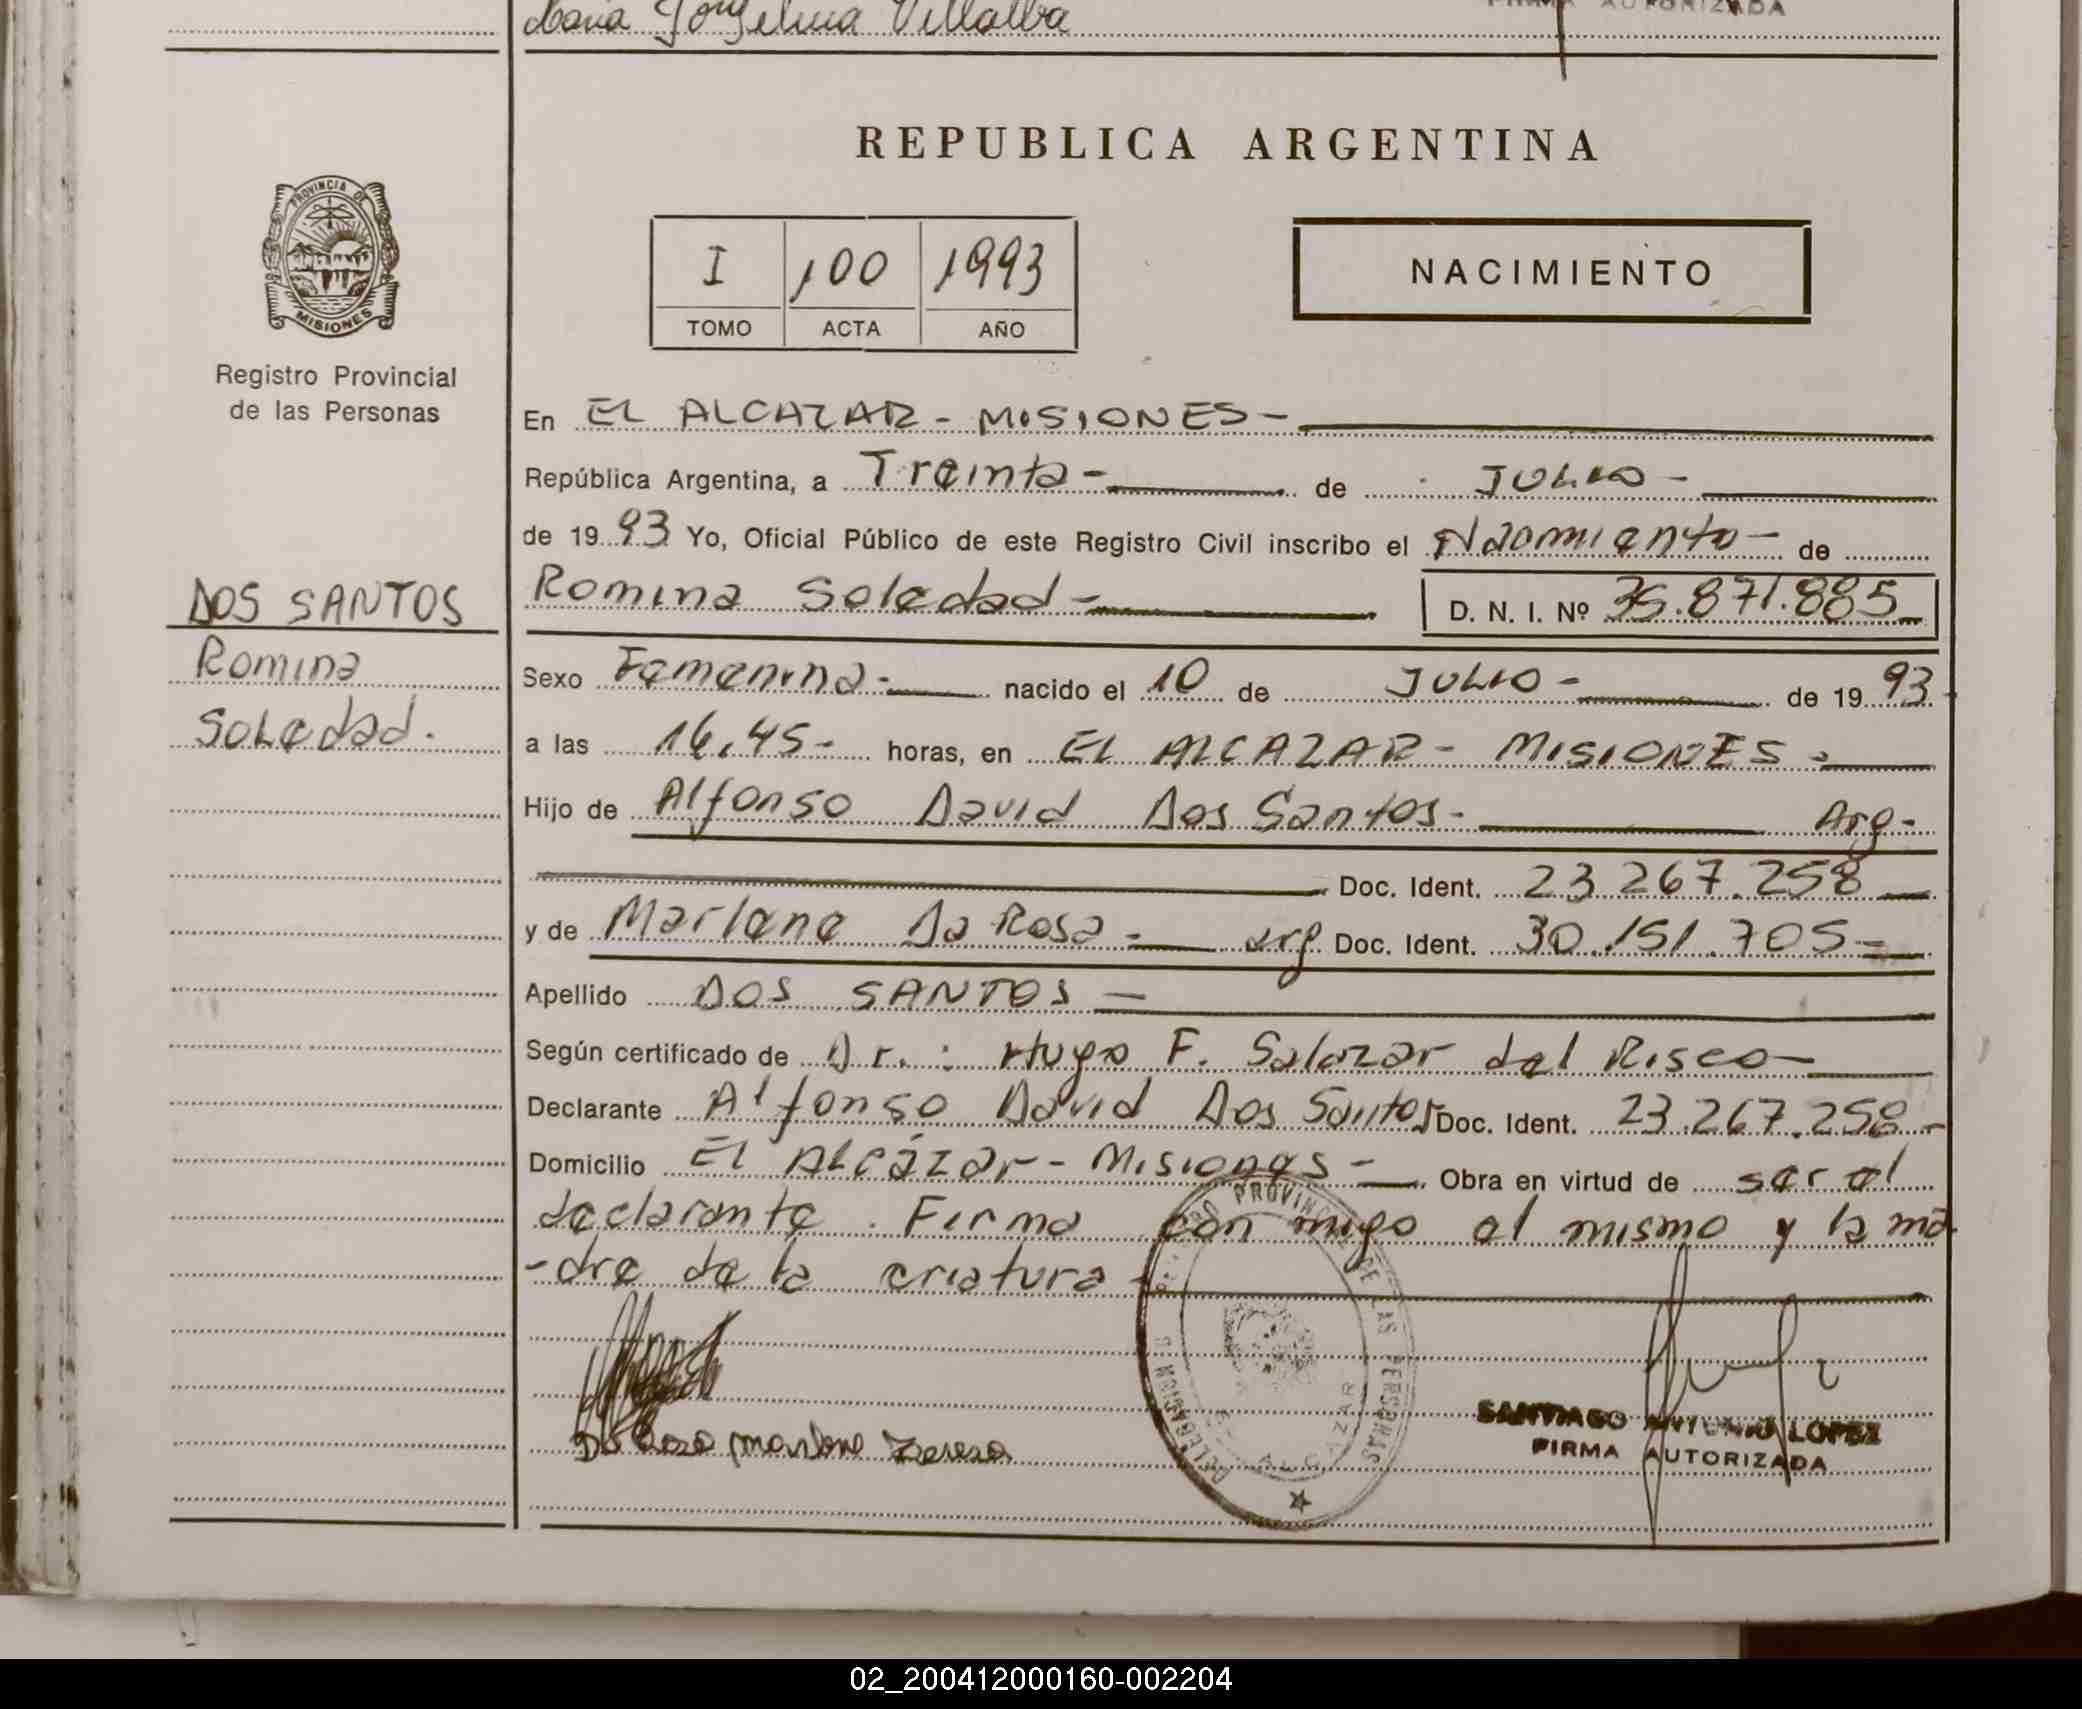 Maria Jorgelina Villalba
FIRMA AUTORIZADA
REPUBLICA ARGENTINA
PROVINCIA DE
MISIONES
Registro Provincial
de las Personas
I 100 1993
TOMO ACTA AÑO
NACIMIENTO
En EL ALCAZAR - MISIONES -
República Argentina, a Treinta - de JULIO -
de 1993 Yo, Oficial Público de este Registro Civil inscribo el Nacimiento - de
DOS SANTOS
Romina
Soledad.
Romina Soledad - D. N. I. Nº 35.871.885
Sexo Femenina - nacido el 10 de JULIO - de 1993
a las 16,45 - horas, en EL ALCAZAR - MISIONES -
Hijo de Alfonso David Dos Santos - Arg -
Doc. Ident. 23.267.258
y de Marlene Da Rosa - arg Doc. Ident. 30.151.705 -
Apellido DOS SANTOS -
Según certificado de Dr.: Hugo F. Salazar del Risco -
Declarante Alfonso David Dos Santos Doc. Ident. 23.267.258 -
Domicilio El ALCázar - Misiones - Obra en virtud de ser el
declarante. Firma con migo el mismo y la ma
-dre de la criatura -
REGISTRO PROVINCIAL DE LAS PERSONAS
DELEGACION
EL ALCAZAR
Da Rosa Marlene Teresa
SANTIAGO ANTONIO LOPEZ
FIRMA AUTORIZADA
02_200412000160-002204